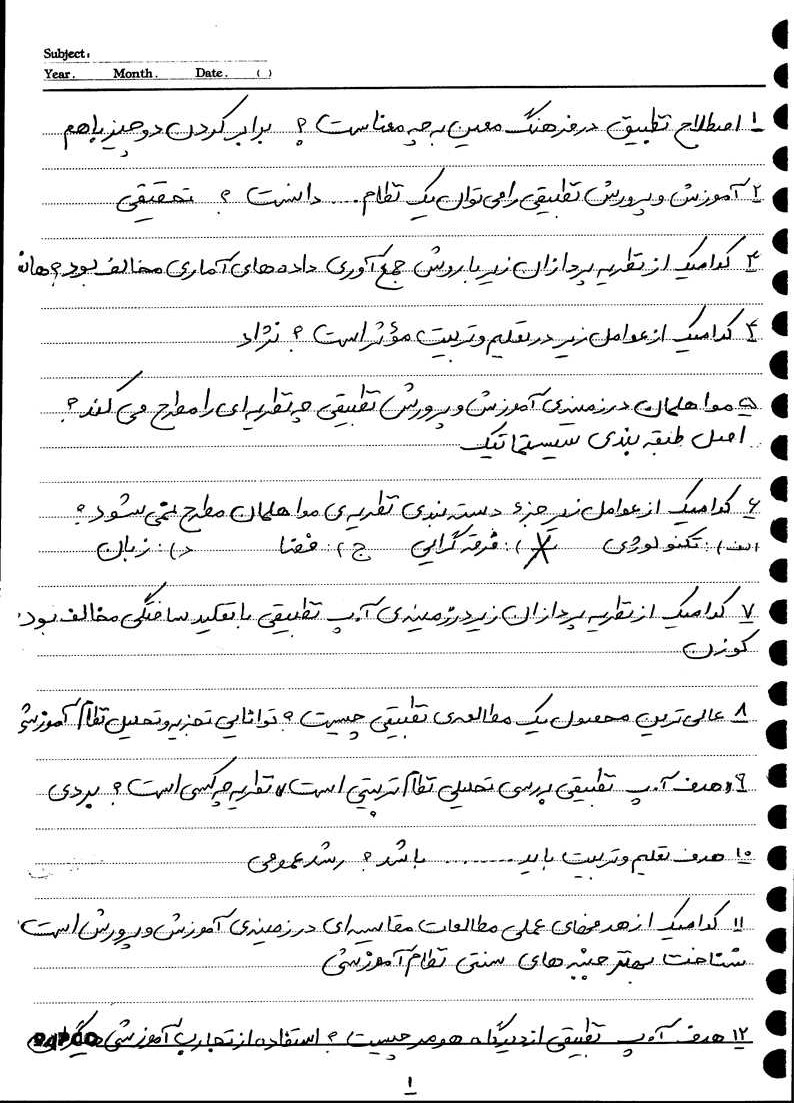 Subject:
Year. Month. Date. ( )
۱ اصطلاح تطبیق در فرهنگ معین به چه معناست؟ برابر کردن دو چیز با هم
۲ آموزش و پرورش تطبیقی را می توان یک نظام .... دانست؟ تحقیقی
۳ کدامیک از نظریه پردازان زیر با روش جمع آوری داده های آماری مخالف بود؟ هانا
۴ کدامیک از عوامل زیر در تعلیم و تربیت مؤثر است؟ نژاد
۵ موا هلمان در زمینه ی آموزش و پرورش تطبیقی چه نظریه ای را مطرح می کند؟
اصل طبقه بندی سیستماتیک
۶ کدامیک از عوامل زیر جزء دسته بندی نظریه ی موا هلمان مطرح نمی شود؟
الف): تکنولوژی ب): فرقه گرایی ج): فضا د): زبان
۷ کدامیک از نظریه پردازان زیر در زمینه ی آ.پ تطبیقی با تقلید ساختگی مخالف بود.
کوزن
۸ عالی ترین محصول یک مطالعه ی تطبیقی چیست؟ توانایی تجزیه و تحلیل نظام آموزشی
۹ «هدف آ.پ تطبیقی بررسی تحلیلی نظام تربیتی است» نظریه چه کسی است؟ بردی
۱۰ هدف تعلیم و تربیت باید ........ باشد؟ رشد عمومی
۱۱ کدامیک از هدفهای عملی مطالعات مقایسه ای در زمینه ی آموزش و پرورش است
شناخت بهتر جنبه های سنتی نظام آموزشی
۱۲ هدف آ.پ تطبیقی از دیدگاه هومر چیست؟ استفاده از تجارب آموزشی دیگران
PAPCO
۱